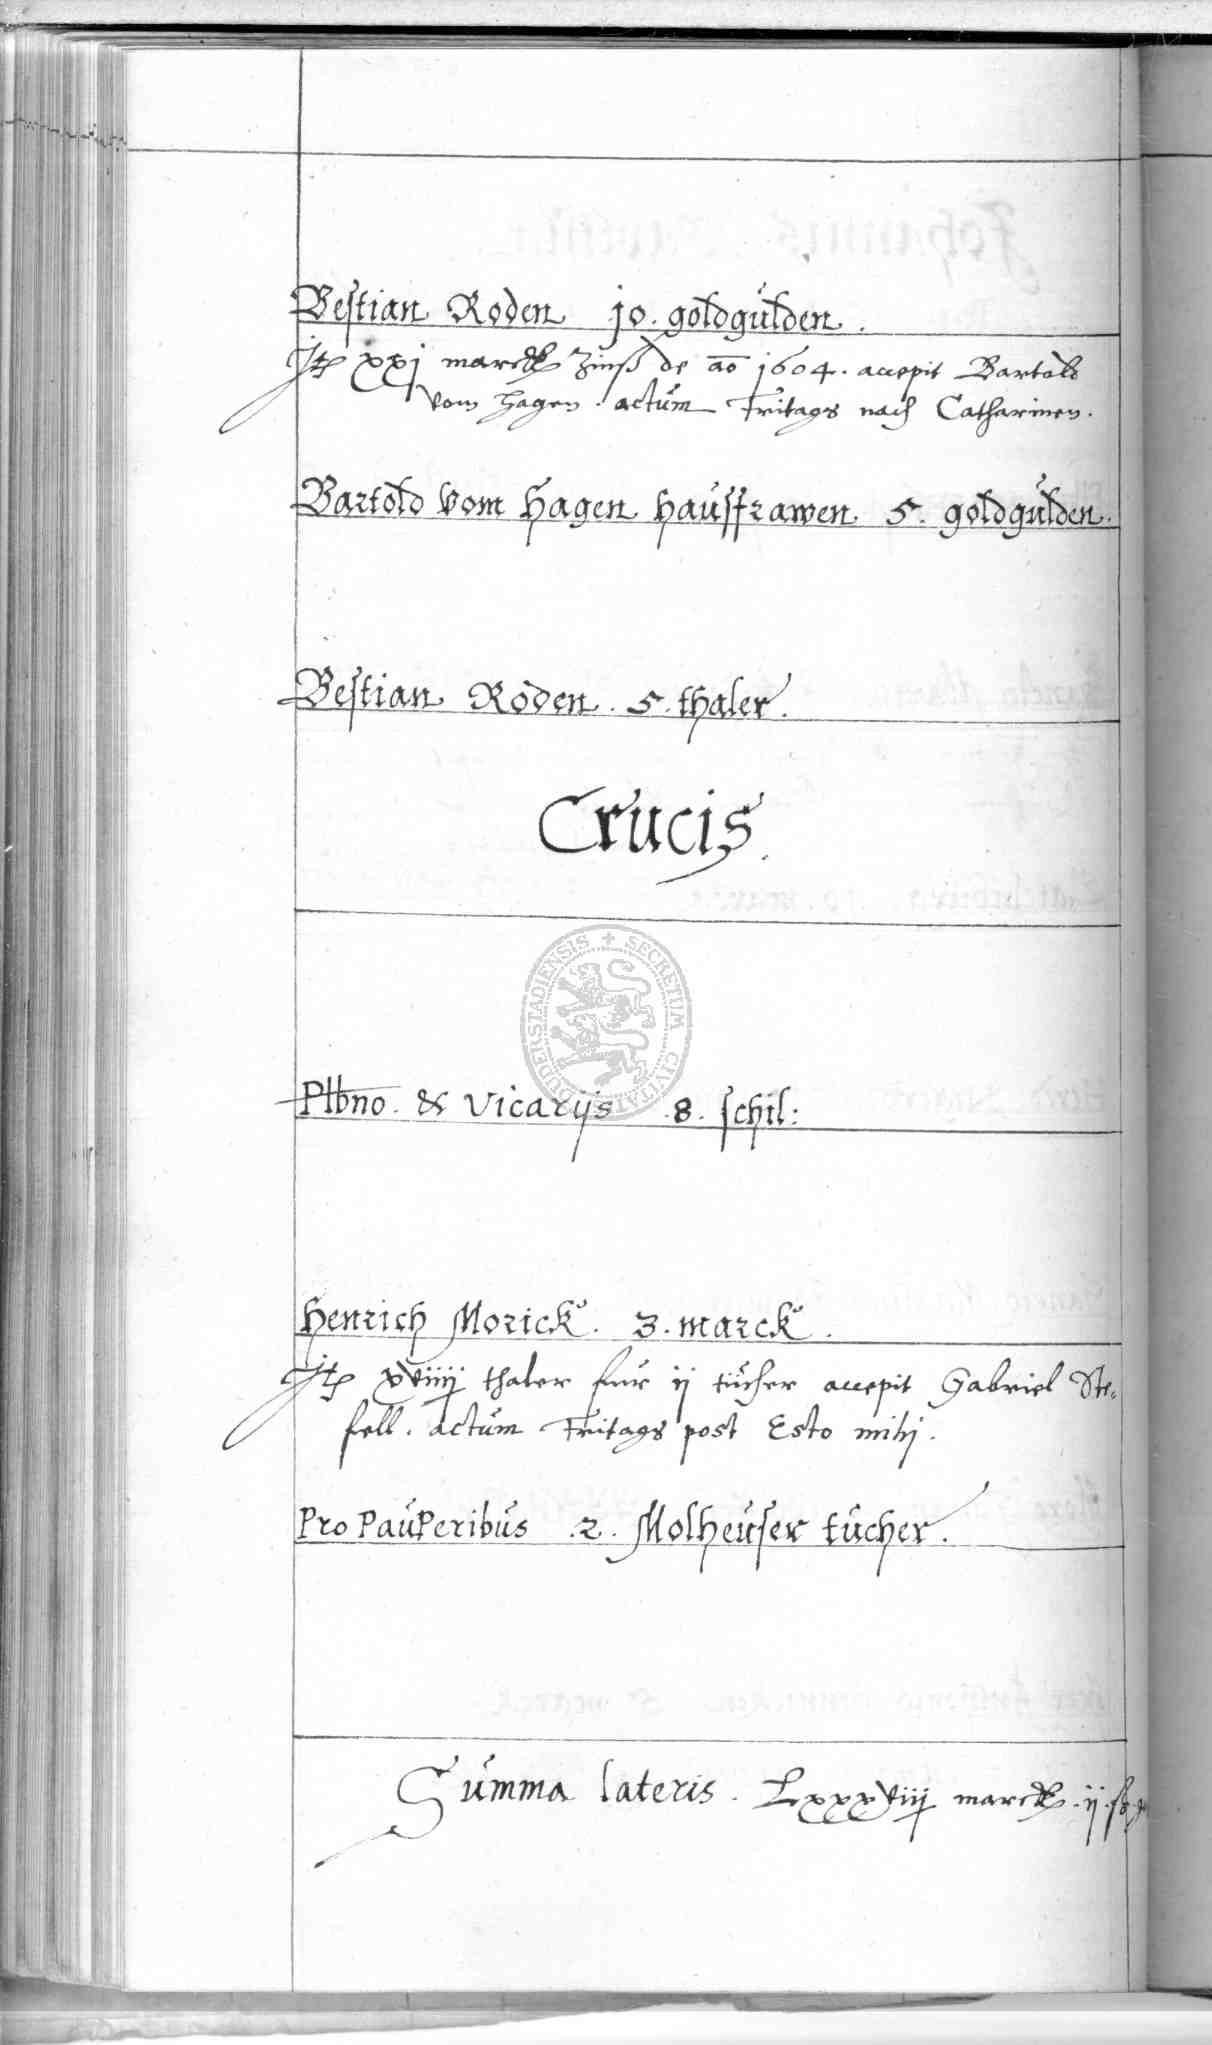 Bestian Roden jo. goldgulden.
Jt xxj marck Zinß de ao 1604. accepit Bartold
vom Hagen. actum Fritags nach Catharinen.
Bartold vom Hagen haussfrawen 5. goldgulden.
Bestian Roden. 5. thaler.
Crucis.
SECRETUM CIVITATIS DUDERSTADIENSIS
Plbno. & Vicarijs .8. schil:
Henrich Morick. 3. marck.
Jt xviiij thaler fuur ij tucher accepit Gabriel Ste-
fell. actum Fritags post Esto mihj.
Pro Pauperibus .2. Molheuser tucher.
Summa lateris. Lxxxviiij marck. ij.